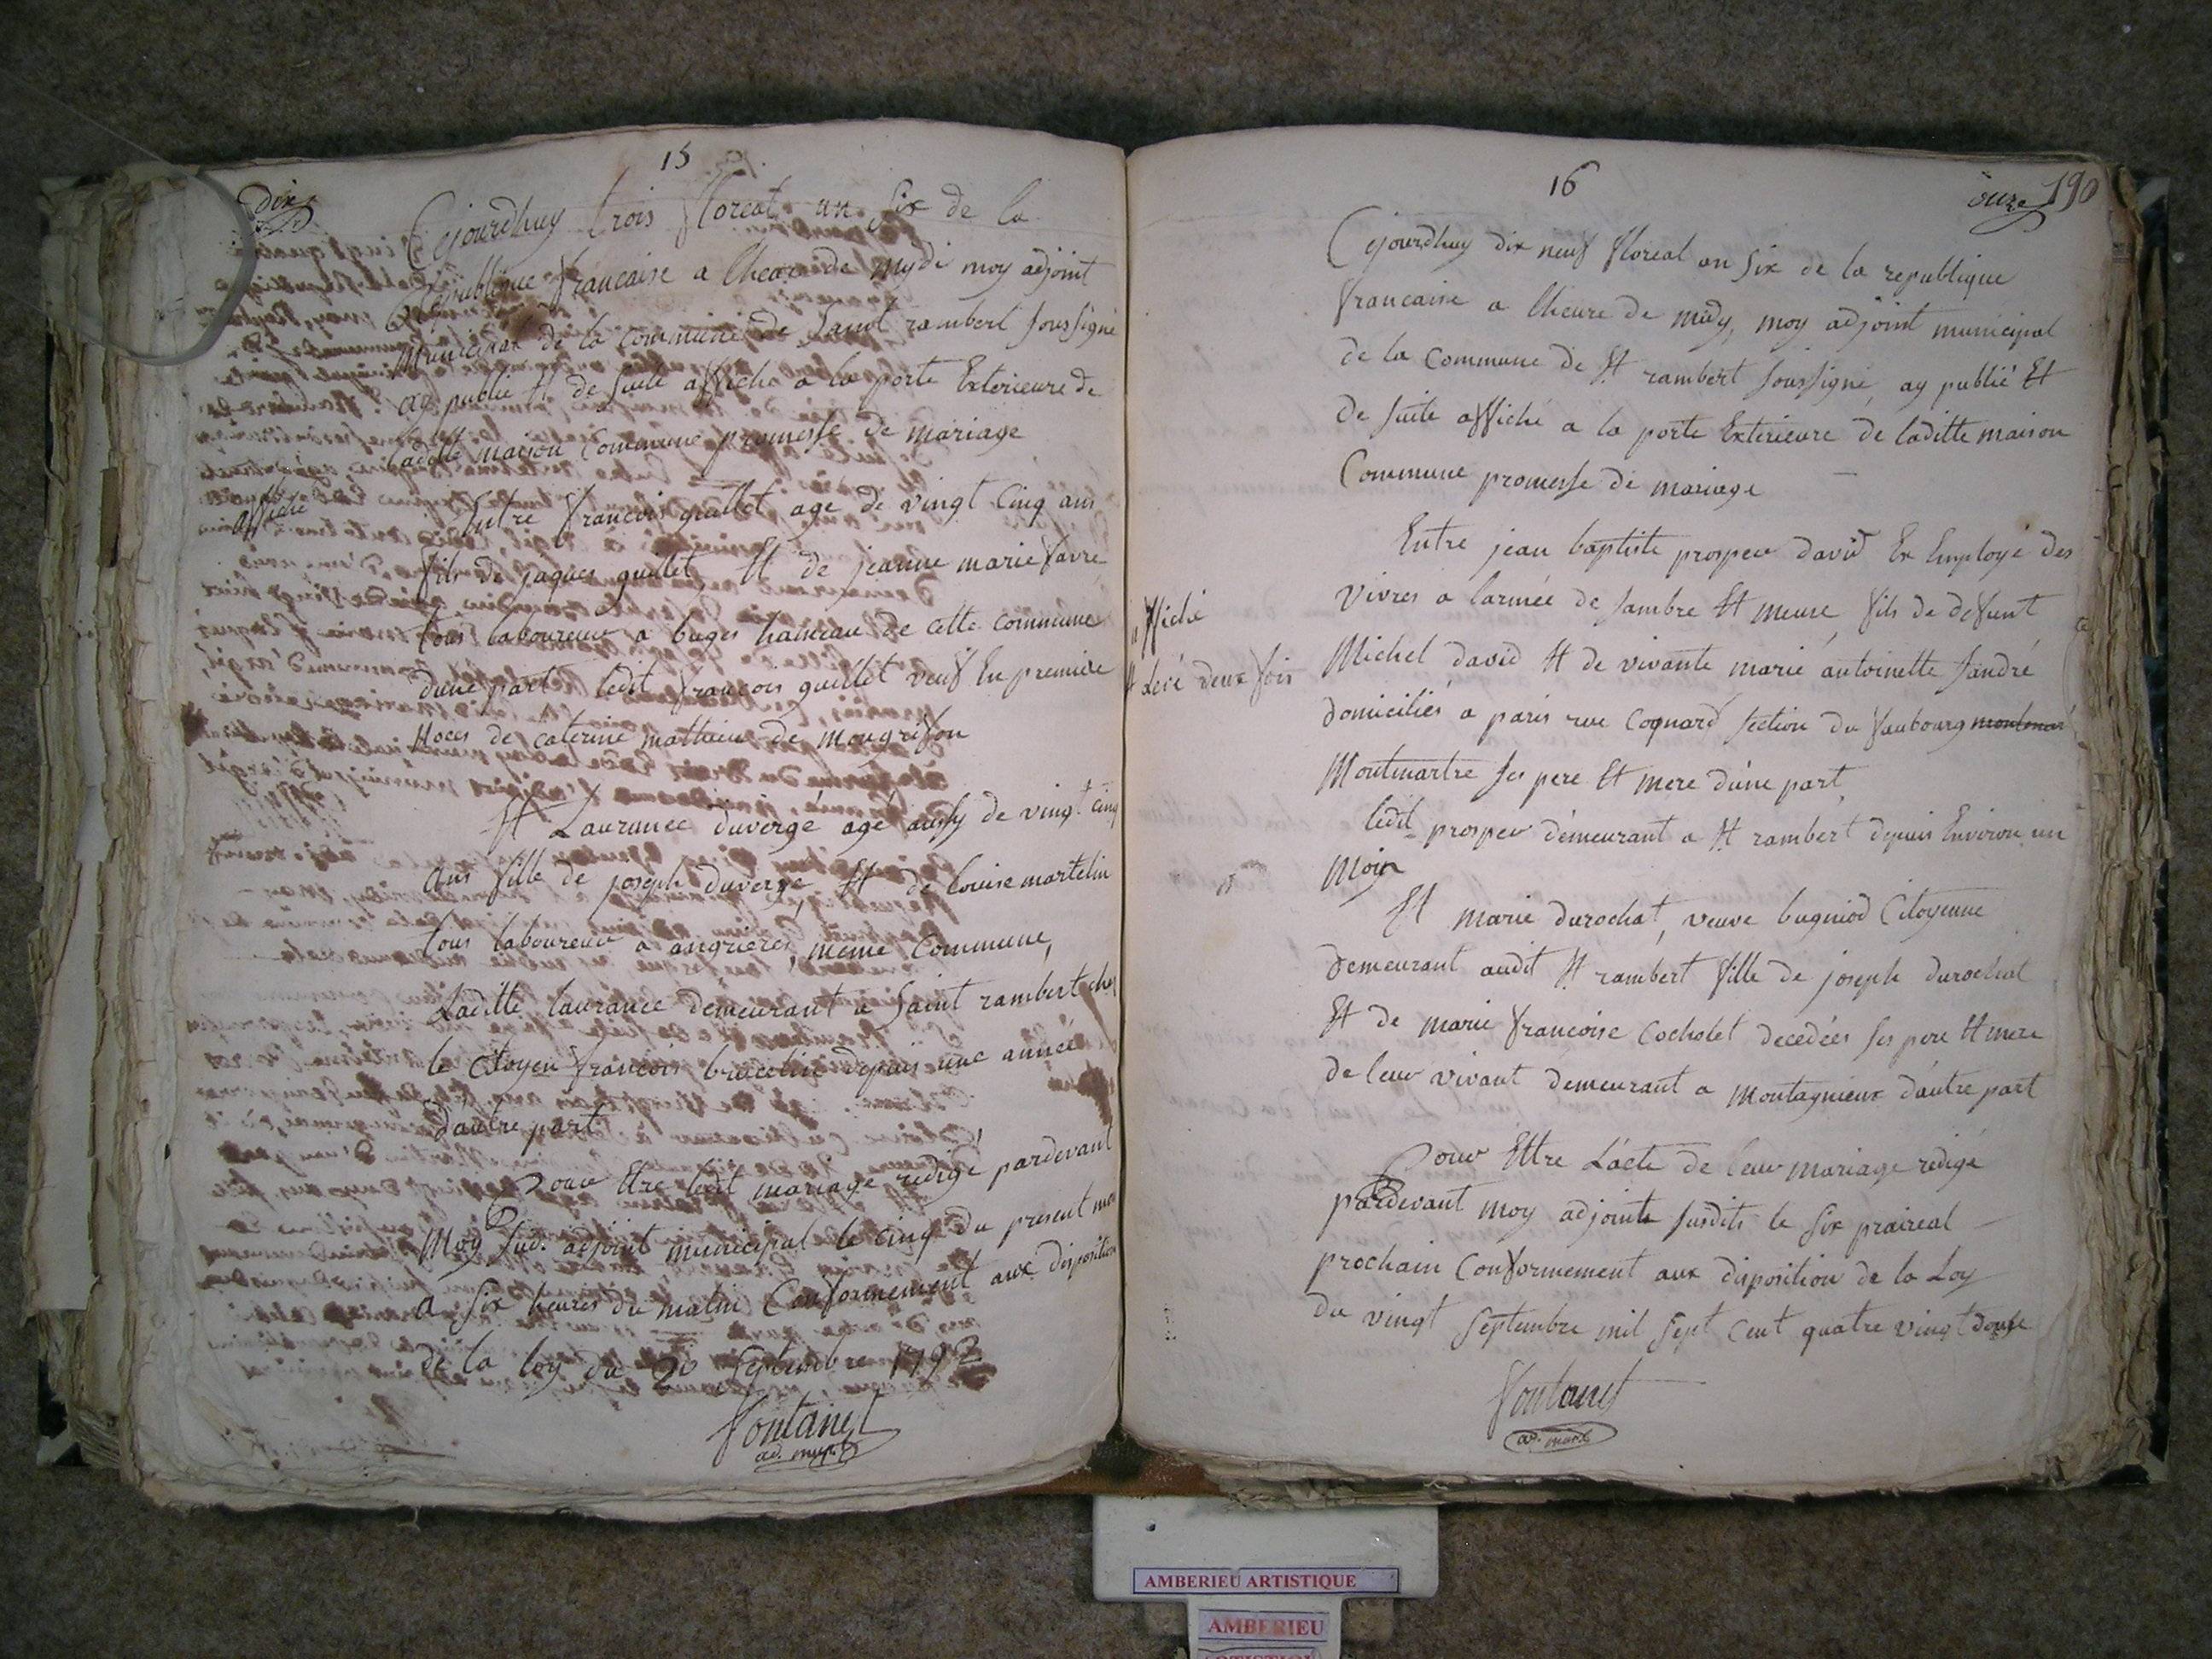 15
dix
Cejourdhuy trois floreal an six de la
Republique francaise a lheure de mydi moy adjoint
municipal de la commune de Saint rambert soussigné
ay publié Et de suite affiché a la porte Exterieure de
laditte maison Commune promesse de mariage
affiché
Entre francois guillet agé de vingt Cinq ans
fils de jaques guillet, Et de jeanne marie favre
tous laboureur a buges hameau de cette commune
dune part ledit francois guillet veuf En premiere
Noces de caterine mathieu de Mongrifon
Et Laurance duvergé agé aussy de vingt cinq
ans fille de joseph duvergé, Et de louise martelin
tous laboureur a angrieres, meme Commune,
Laditte laurance demeurant a Saint rambert chez
le Citoyen francois brucelin depuis une année
dautre part
Pour Etre ledit mariage redigé pardevant
Moy sud. adjoint municipal le cinq du present mois
a six heures du matin Conformement aux disposition
de la loy du 20 Septembre 1792
fontanet
ad. mupal
16
onze 190
Cejourdhuy dix neuf floreal an six de la republique
francaise a lheure de midy, moy adjoint municipal
de la Commune de St rambert soussigné, ay publié Et
de suite affiché a la porte Exterieure de laditte maison
Commune promesse de mariage
Entre jean baptiste prosper david Ex Employé des
vivres a larmée de sambre Et meuse, fils de defunt
affiché
Et levé deux fois
Michel david Et de vivante marie antoinette sandré
domiciliés a paris rue Coqnard section du faubourg montmar
Montmartre ses pere Et mere dune part,
ledit prosper demeurant a St rambert depuis Environ un
Mois
Et marie durochat, veuve bugniod Citoyenne
demeurant audit St rambert fille de joseph durochat
Et de marie francoise Cocholet decedées ses pere Et mere
de leur vivant demeurant a Montagnieux dautre part
Pour Ettre Lacte de leur mariage redigé
pardevant moy adjoint susdits le six praireal
prochain Conformement aux disposition de la Loy
du vingt Septembre mil sept Cent quatre vingt douse
fontanet
ad. mupal
AMBERIEU ARTISTIQUE
AMBERIEU
ARTISTIQUE